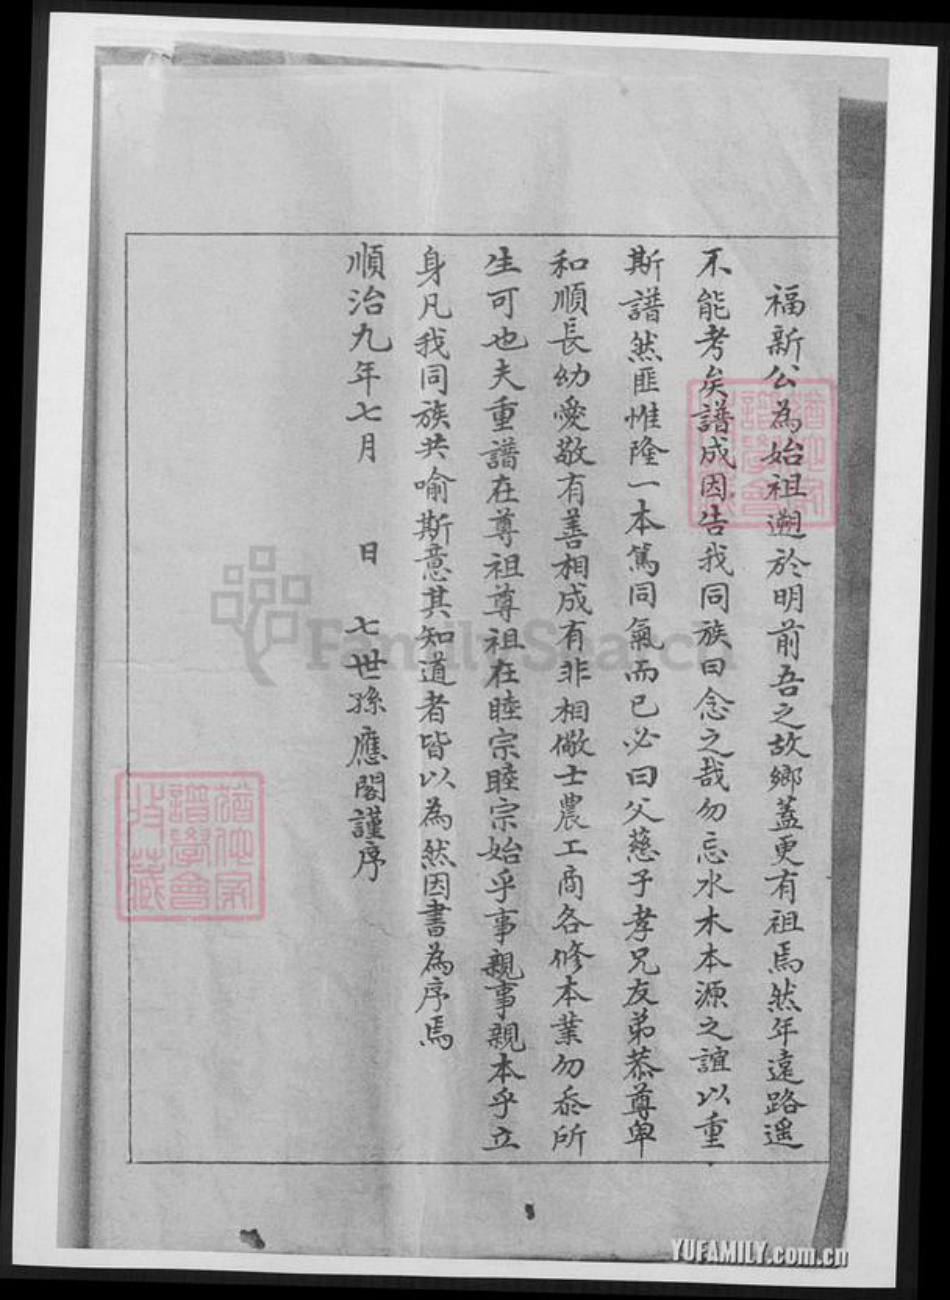 福新公為始祖遡於明前吾之故鄉蓋更有祖焉然年遠路遥
不能考矣譜成因告我同族曰念之哉勿忘水木本源之誼以重
斯譜然匪惟隆一本篤同氣而已必曰父慈子孝兄友弟恭尊卑
和順長幼愛敬有善相成有非相儆士農工商各修本業勿忝所
生可也夫重譜在尊祖尊祖在睦宗睦宗始乎事親事親本乎立
身凡我同族共喻斯意其知道者皆以為然因書為序焉
順治九年七月 日 七世孫應閣謹序
譜學會
持藏
FamilySearch
YUFAMILY.com.cn